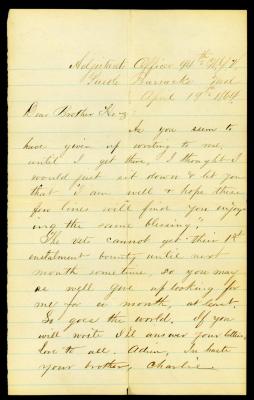 Adjutants Office 94th N.Y.V.
Parole Barracks Md
April 19th 1864
Dear Brother
As you seem to
have given up writing to me,
until I get there, I thought I
would just sit down & let you
that "I am well & hope these
few lines will find you enjoy-
ing the same blessing."
The vets cannot get their 1st
instalment bounty until next
month sometime, so you may
as well give up looking for
me for a month, at least.
So goes the world. If you
will write I'll answer your letters.
Love to all. Adieu, In haste
Your brother, Charlie